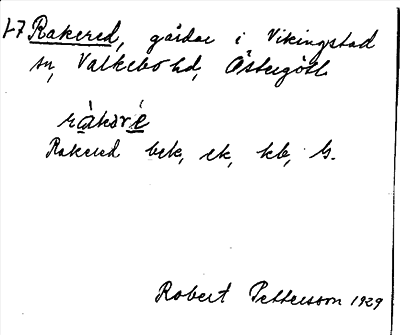 Rakered, gårdar i Vikingstad
sn, Valkebo hd, Östergötl.
ràkəré
Rakered bek, ek, kb, G.
Robert Pettersson 1929